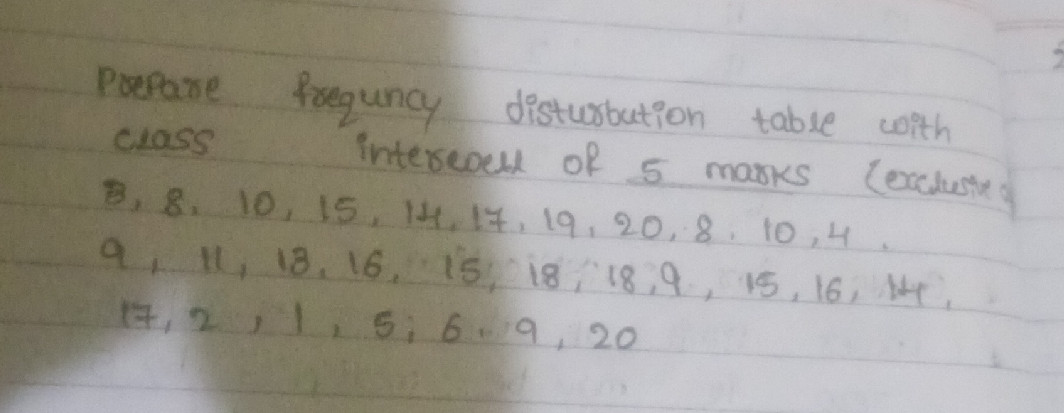 Prepare frequncy disturbution table with
class interevell of 5 marks (exclusive
3, 8, 10, 15, 14, 17, 19, 20, 8, 10, 4,
9, 11, 13, 16, 15, 18, 18, 9, 15, 16, 14,
17, 2, 1, 5, 6, 9, 20